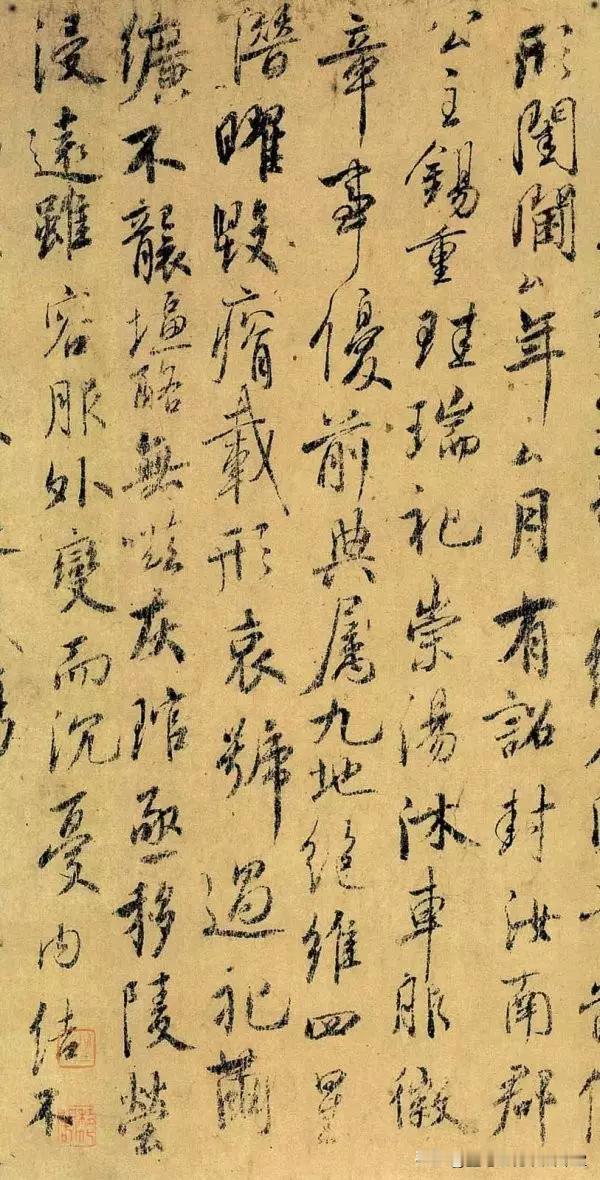 形閨閫厶年厶月有詔封汝南郡
公主錫重珪瑞礼崇湯沐車服徽
章事優前典屬九地絕維四星
潛曜毀瘠載形哀號過礼繭
纊不襲塩酪無嗞灰琯亟移陵塋
浸遠雖容服外變而沉憂內結不